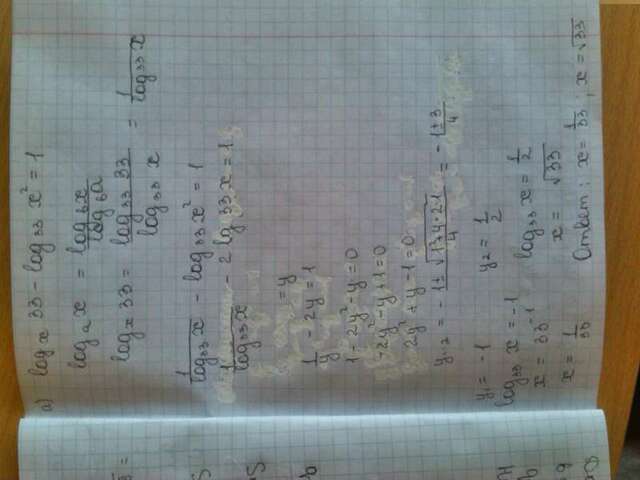 а) logₓ 33 - log₃₃ x² = 1
logₐ x = log_b x / log_b a
logₓ 33 = log₃₃ 33 / log₃₃ x = 1 / log₃₃ x
1 / log₃₃ x - log₃₃ x² = 1
1 / log₃₃ x - 2 lg 33 x = 1
= y
1/y - 2y = 1
1 - 2y² - y = 0
-2y² - y + 1 = 0
2y² + y - 1 = 0
y₁,₂ = -1 ± √(1+4·2·1) / 4 = -1±3 / 4
y₁ = -1 y₂ = 1/2
log₃₃ x = -1 log₃₃ x = 1/2
x = 33⁻¹ x = √33
x = 1/33
Ответ: x = 1/33 ; x = √33